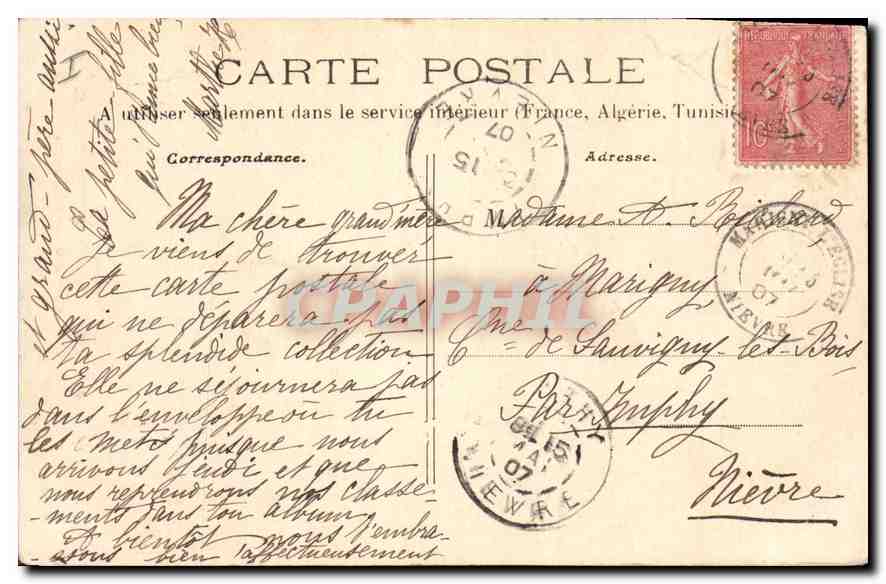 CARTE POSTALE
A utiliser seulement dans le service intérieur (France, Algérie, Tunisie
Correspondance.
Adresse.
REPUBLIQUE FRANÇAISE
10
Ma chère grand'mère
Je viens de trouver
cette carte postale
qui ne déparera pas
ta splendide collection
Elle ne séjournera pas
dans l'enveloppe où tu
les mets puisque nous
arrivons jeudi et que
nous reprendrons nos classe-
-ments dans ton album
A bientôt nous t'embra-
-ssons bien affectueusement
et grand-père aussi
Ta petite fille
qui t'aime bien
Marthe
Madame A.
à Marigny
Cne de Sauvigny-les-Bois
Par Imphy
Nièvre
MARIGNY-L'EGLISE
07
NIEVRE
15
07
IMPHY
15
MAI
07
NIEVRE
CPAPHIL